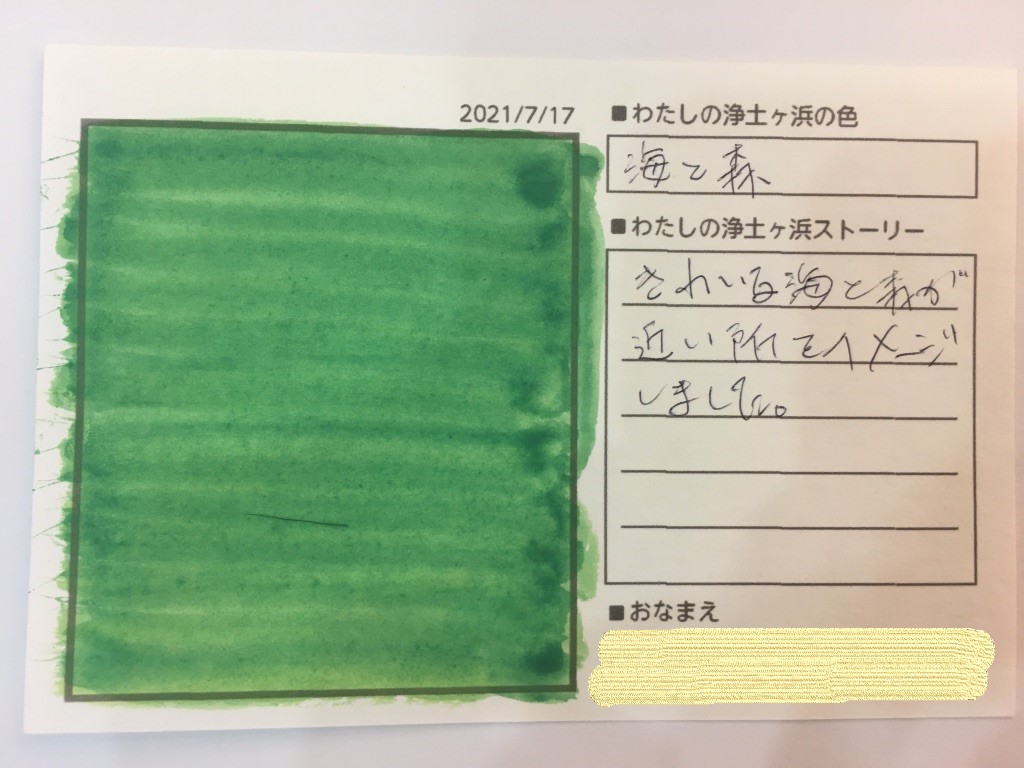 2021/7/17
■わたしの浄土ヶ浜の色
海と森
■わたしの浄土ヶ浜ストーリー
きれいな海と森が
近い所をイメージ
しました。
■おなまえ